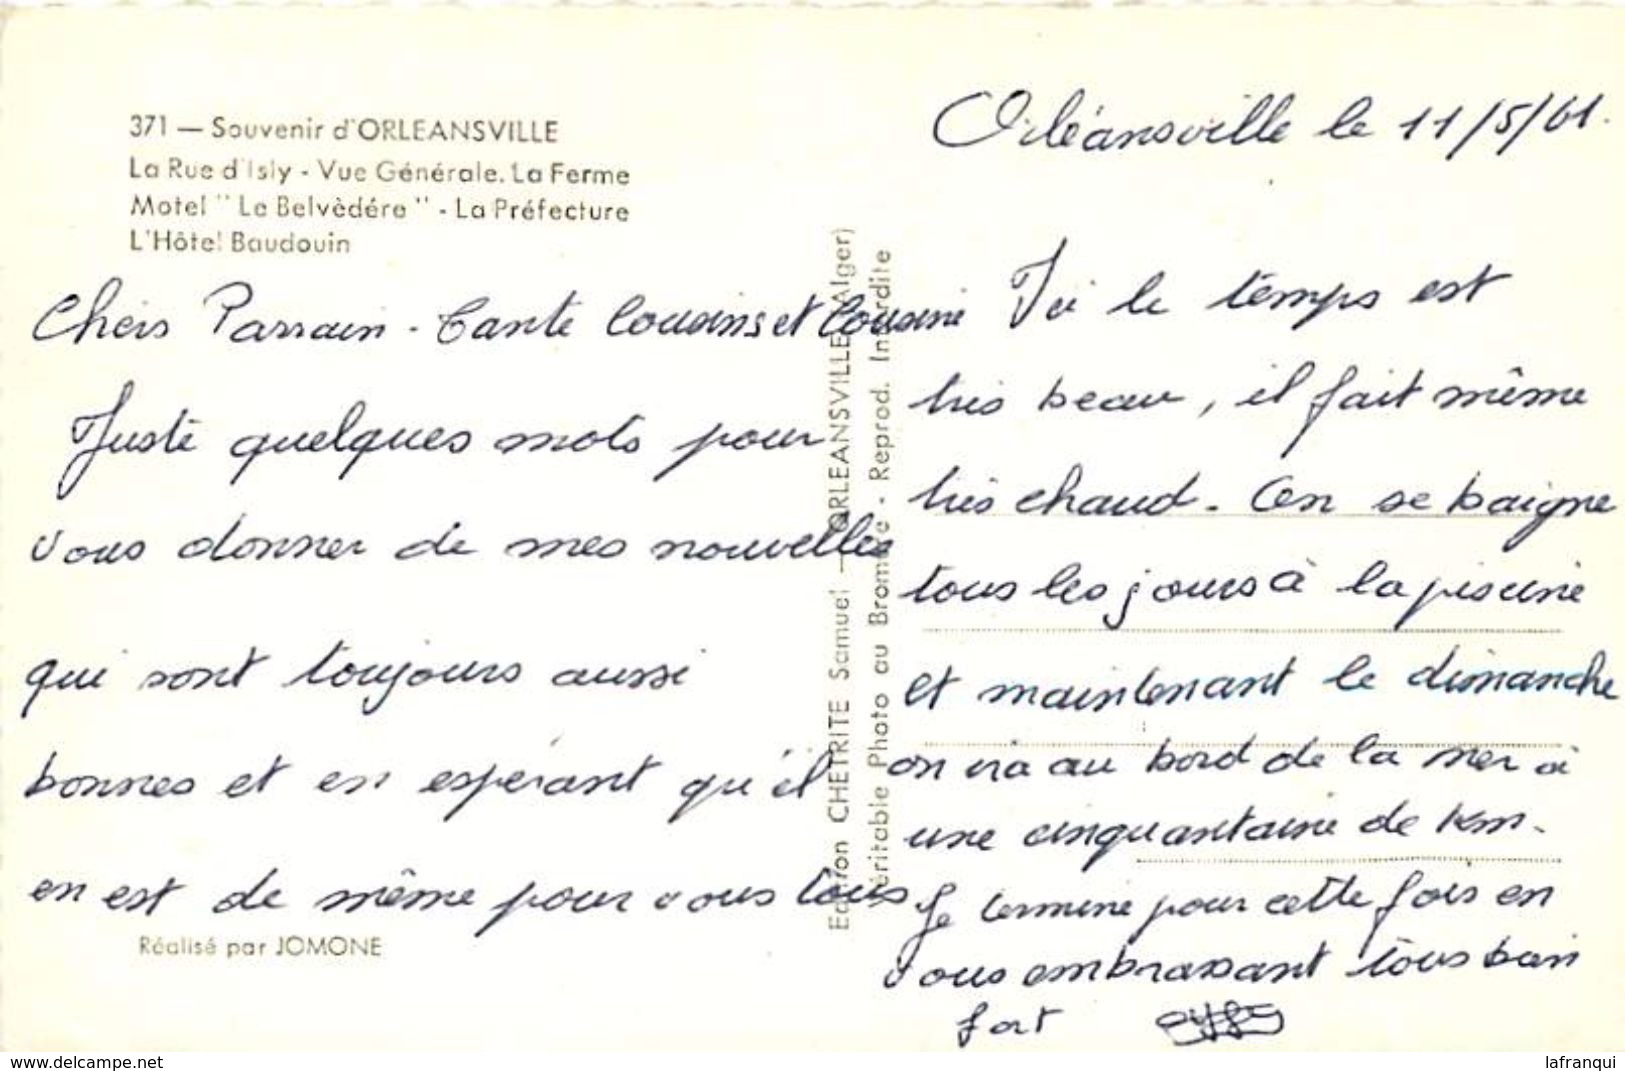 371 — Souvenir d'ORLEANSVILLE
La Rue d'Isly - Vue Générale. La Ferme
Motel " Le Belvèdére " - La Préfecture
L'Hôtel Baudouin
Chers Parrain - Tante Cousins et Cousine
Juste quelques mots pour
vous donner de mes nouvelles
qui sont toujours aussi
bonnes et en espérant qu'il
en est de même pour vous tous
Réalisé par JOMONE
Edition CHETRITE Samuel — ORLEANSVILLE (Alger)
Véritable Photo au Bromure - Reprod. Interdite
Orléansville le 11/5/61.
Ici le temps est
très beau, il fait même
très chaud. On se baigne
tous les jours à la piscine
et maintenant le dimanche
on ira au bord de la mer à
une cinquantaine de km.
Je termine pour cette fois en
vous embrassant tous bien
fort
www.delcampe.net
lafranqui